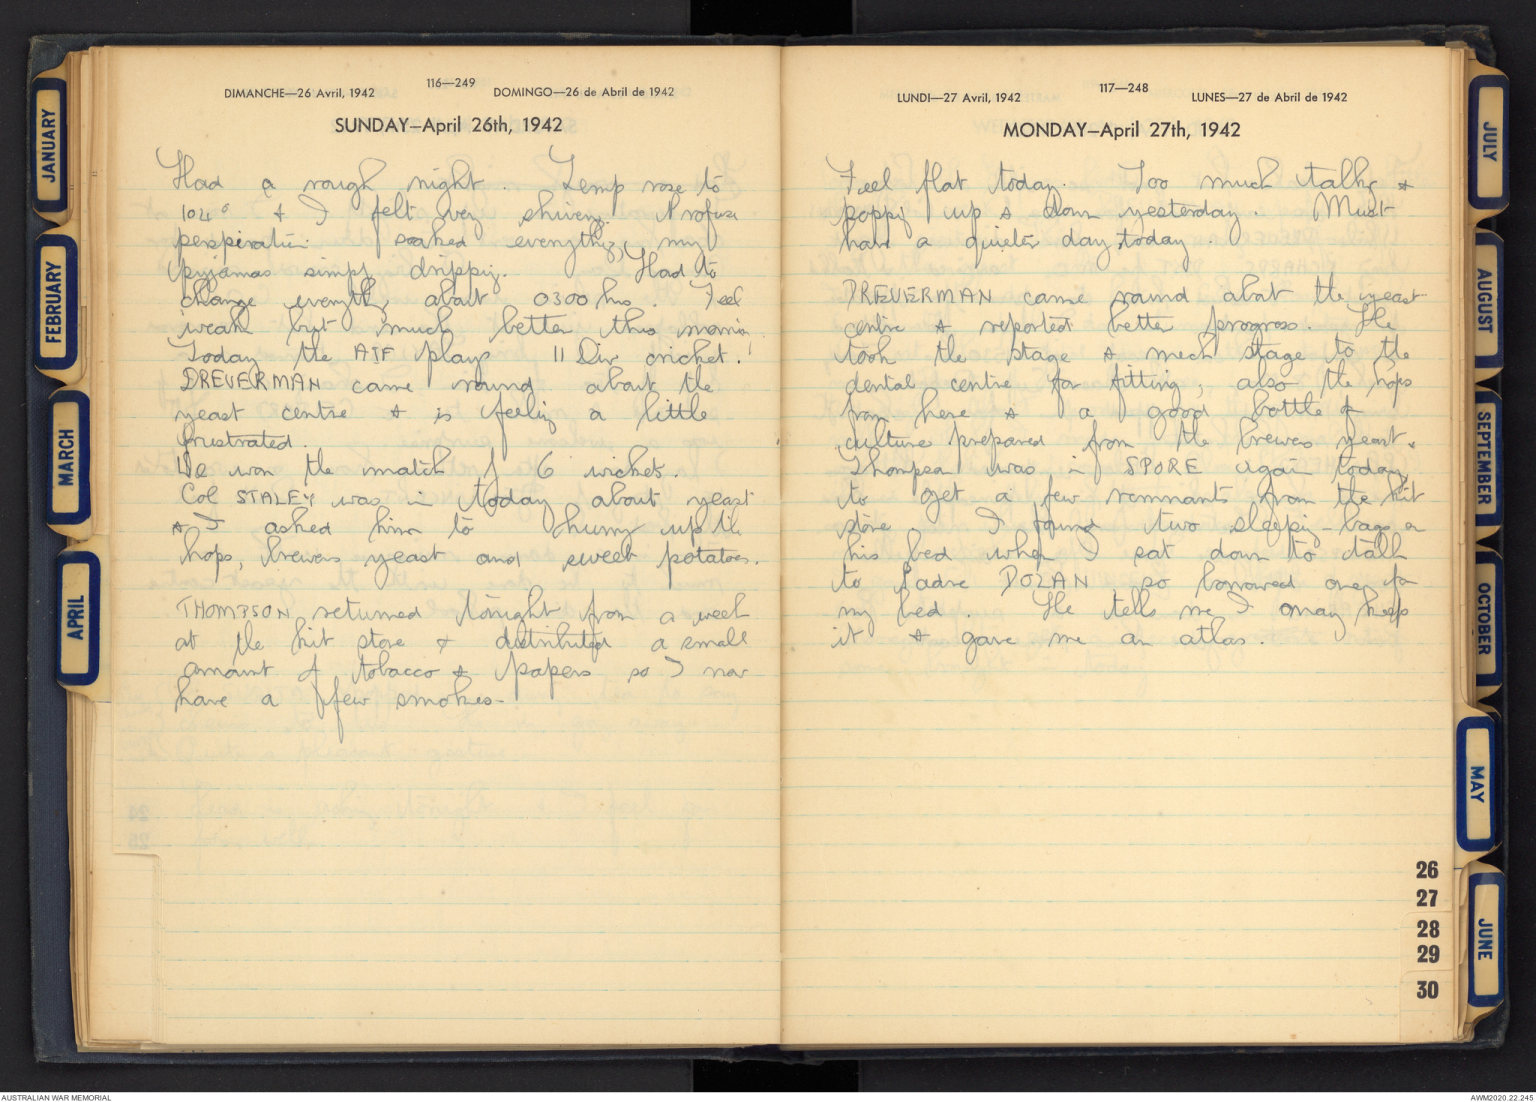 JANUARY
FEBRUARY
MARCH
APRIL
116—249
DIMANCHE—26 Avril, 1942
DOMINGO—26 de Abril de 1942
SUNDAY—April 26th, 1942
Had a rough night. Temp rose to
104° & I felt very shivery. A profuse
perspiration soaked everything, my
pyjamas simply dripping. Had to
change everything about 0300 hrs. Feel
weak but much better this morning.
Today the AIF plays 11 Div cricket.
DREVERMAN came round about the
yeast centre & is feeling a little
frustrated.
We won the match by 6 wickets.
Col STALEY was in today about yeast
& I asked him to hurry up the
hops, brewers yeast and sweet potatoes.
THOMPSON returned tonight from a week
at the kit store & distributed a small
amount of tobacco & papers so I now
have a few smokes-
117—248
LUNDI—27 Avril, 1942
LUNES—27 de Abril de 1942
MONDAY—April 27th, 1942
Feel flat today. Too much talking &
popping up & down yesterday. Must
have a quieter day today.
DREVERMAN came round about the yeast
centre & reported better progress. He
took the stage & mech stage to the
dental centre for fitting, also the hops
from here & a good bottle of
culture prepared from the brewers yeast.
Thompson was in SPORE again today
to get a few remnants from the kit
store. I found two sleeping-bags on
his bed when I sat down to talk
to Padre DOLAN so borrowed one for
my bed. He tells me I may keep
it & gave me an atlas.
26
27
28
29
30
JULY
AUGUST
SEPTEMBER
OCTOBER
MAY
JUNE
AUSTRALIAN WAR MEMORIAL
AWM2020.22.245